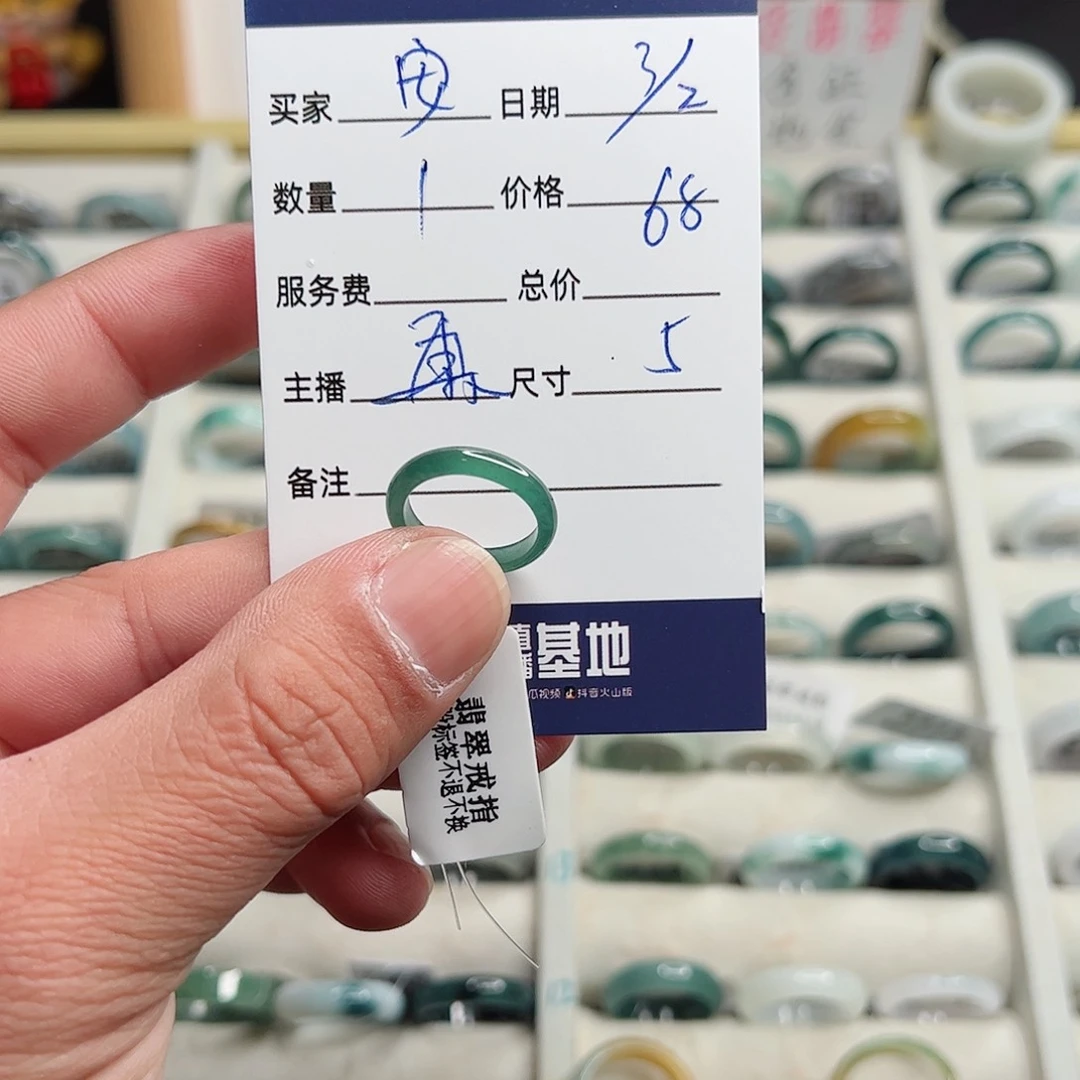 买家 安 日期 3/2
数量 1 价格 68
服务费 总价
主播 尺寸 5
备注
播基地
瓜视频 抖音火山版
翡翠戒指
标签不退不换